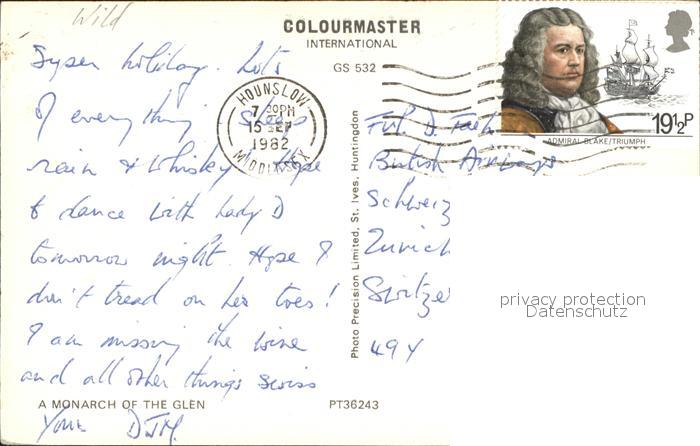 Wild
COLOURMASTER
INTERNATIONAL
GS 532
Super holiday. Lots
of everything sheep
rain & whisky! Hope
to dance with Lady D
tomorrow night. Hope I
don't tread on her toes!
I am missing the wine
and all other things swiss
Yours DJM.
A MONARCH OF THE GLEN
PT36243
Photo Precision Limited, St. Ives, Huntingdon
HOUNSLOW
7 30PM
15 SEP
1982
MIDDLESEX
19½P
ADMIRAL BLAKE/TRIUMPH
D.
British Airways
Schweiz
Zurich
Switze
privacy protection
Datenschutz